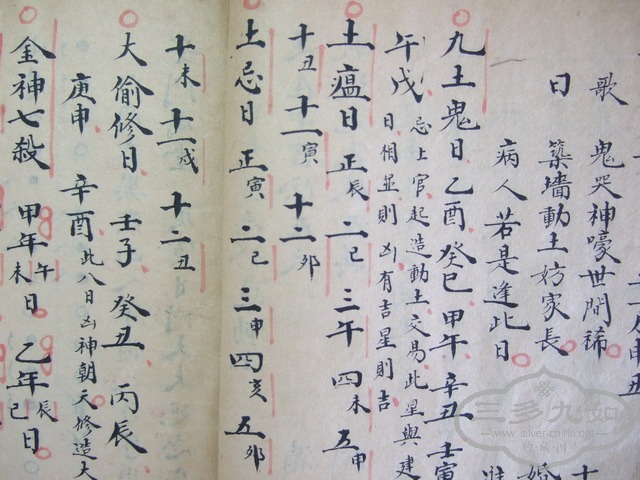 歌 鬼哭神嚎世間稀
日 築墻動土妨家長 婚
病人若是逢此日
九土鬼日乙酉癸巳甲午辛丑壬寅
午戌 忌上官起造動土交易此星與建
日相並則凶有吉星則吉
土瘟日正辰二巳三午四未五申
十丑十一寅十二卯
土忌日正寅二巳三申四亥五卯
十未十一戌十二丑
大偷修日壬子癸丑丙辰
庚申辛酉此八日凶神朝天修造大
金神七殺甲年午未日乙年辰巳日
三多九如
www.silver-china.net